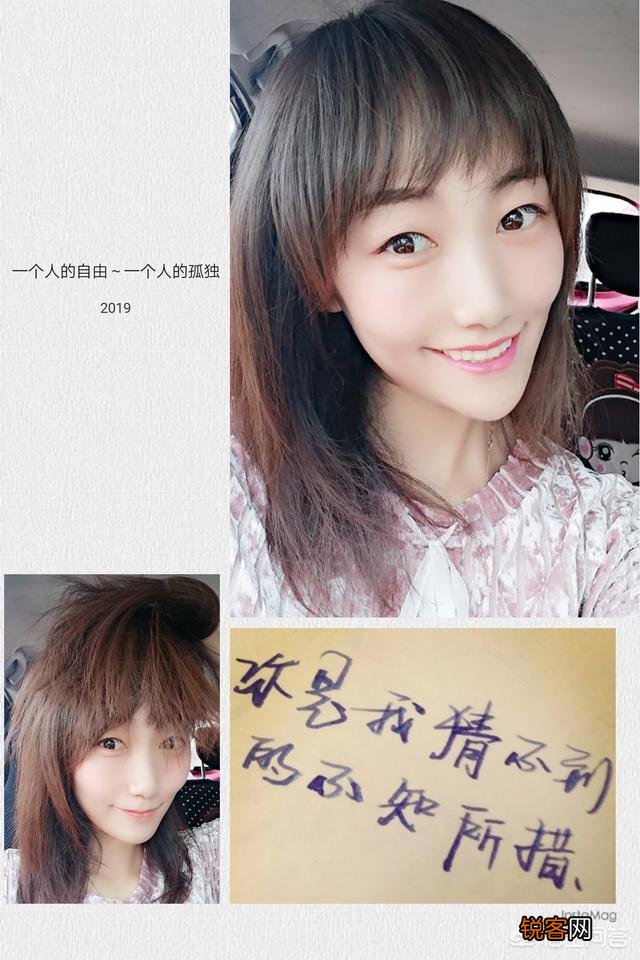 一个人的自由~一个人的孤独
2019
你是我猜不到
的不知所措、
InstaMag
锐客网